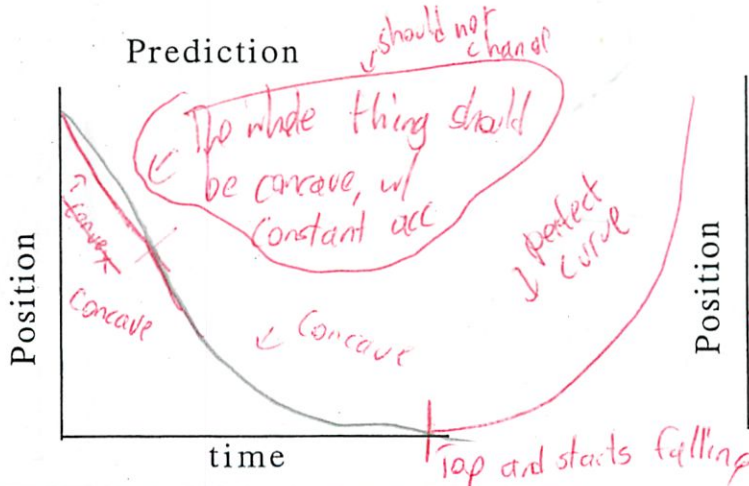 Prediction
should not
The whole thing should
be concave, w/
constant acc
perfect
curve
Position
convex
concave
Concave
Position
time
Top and starts falling